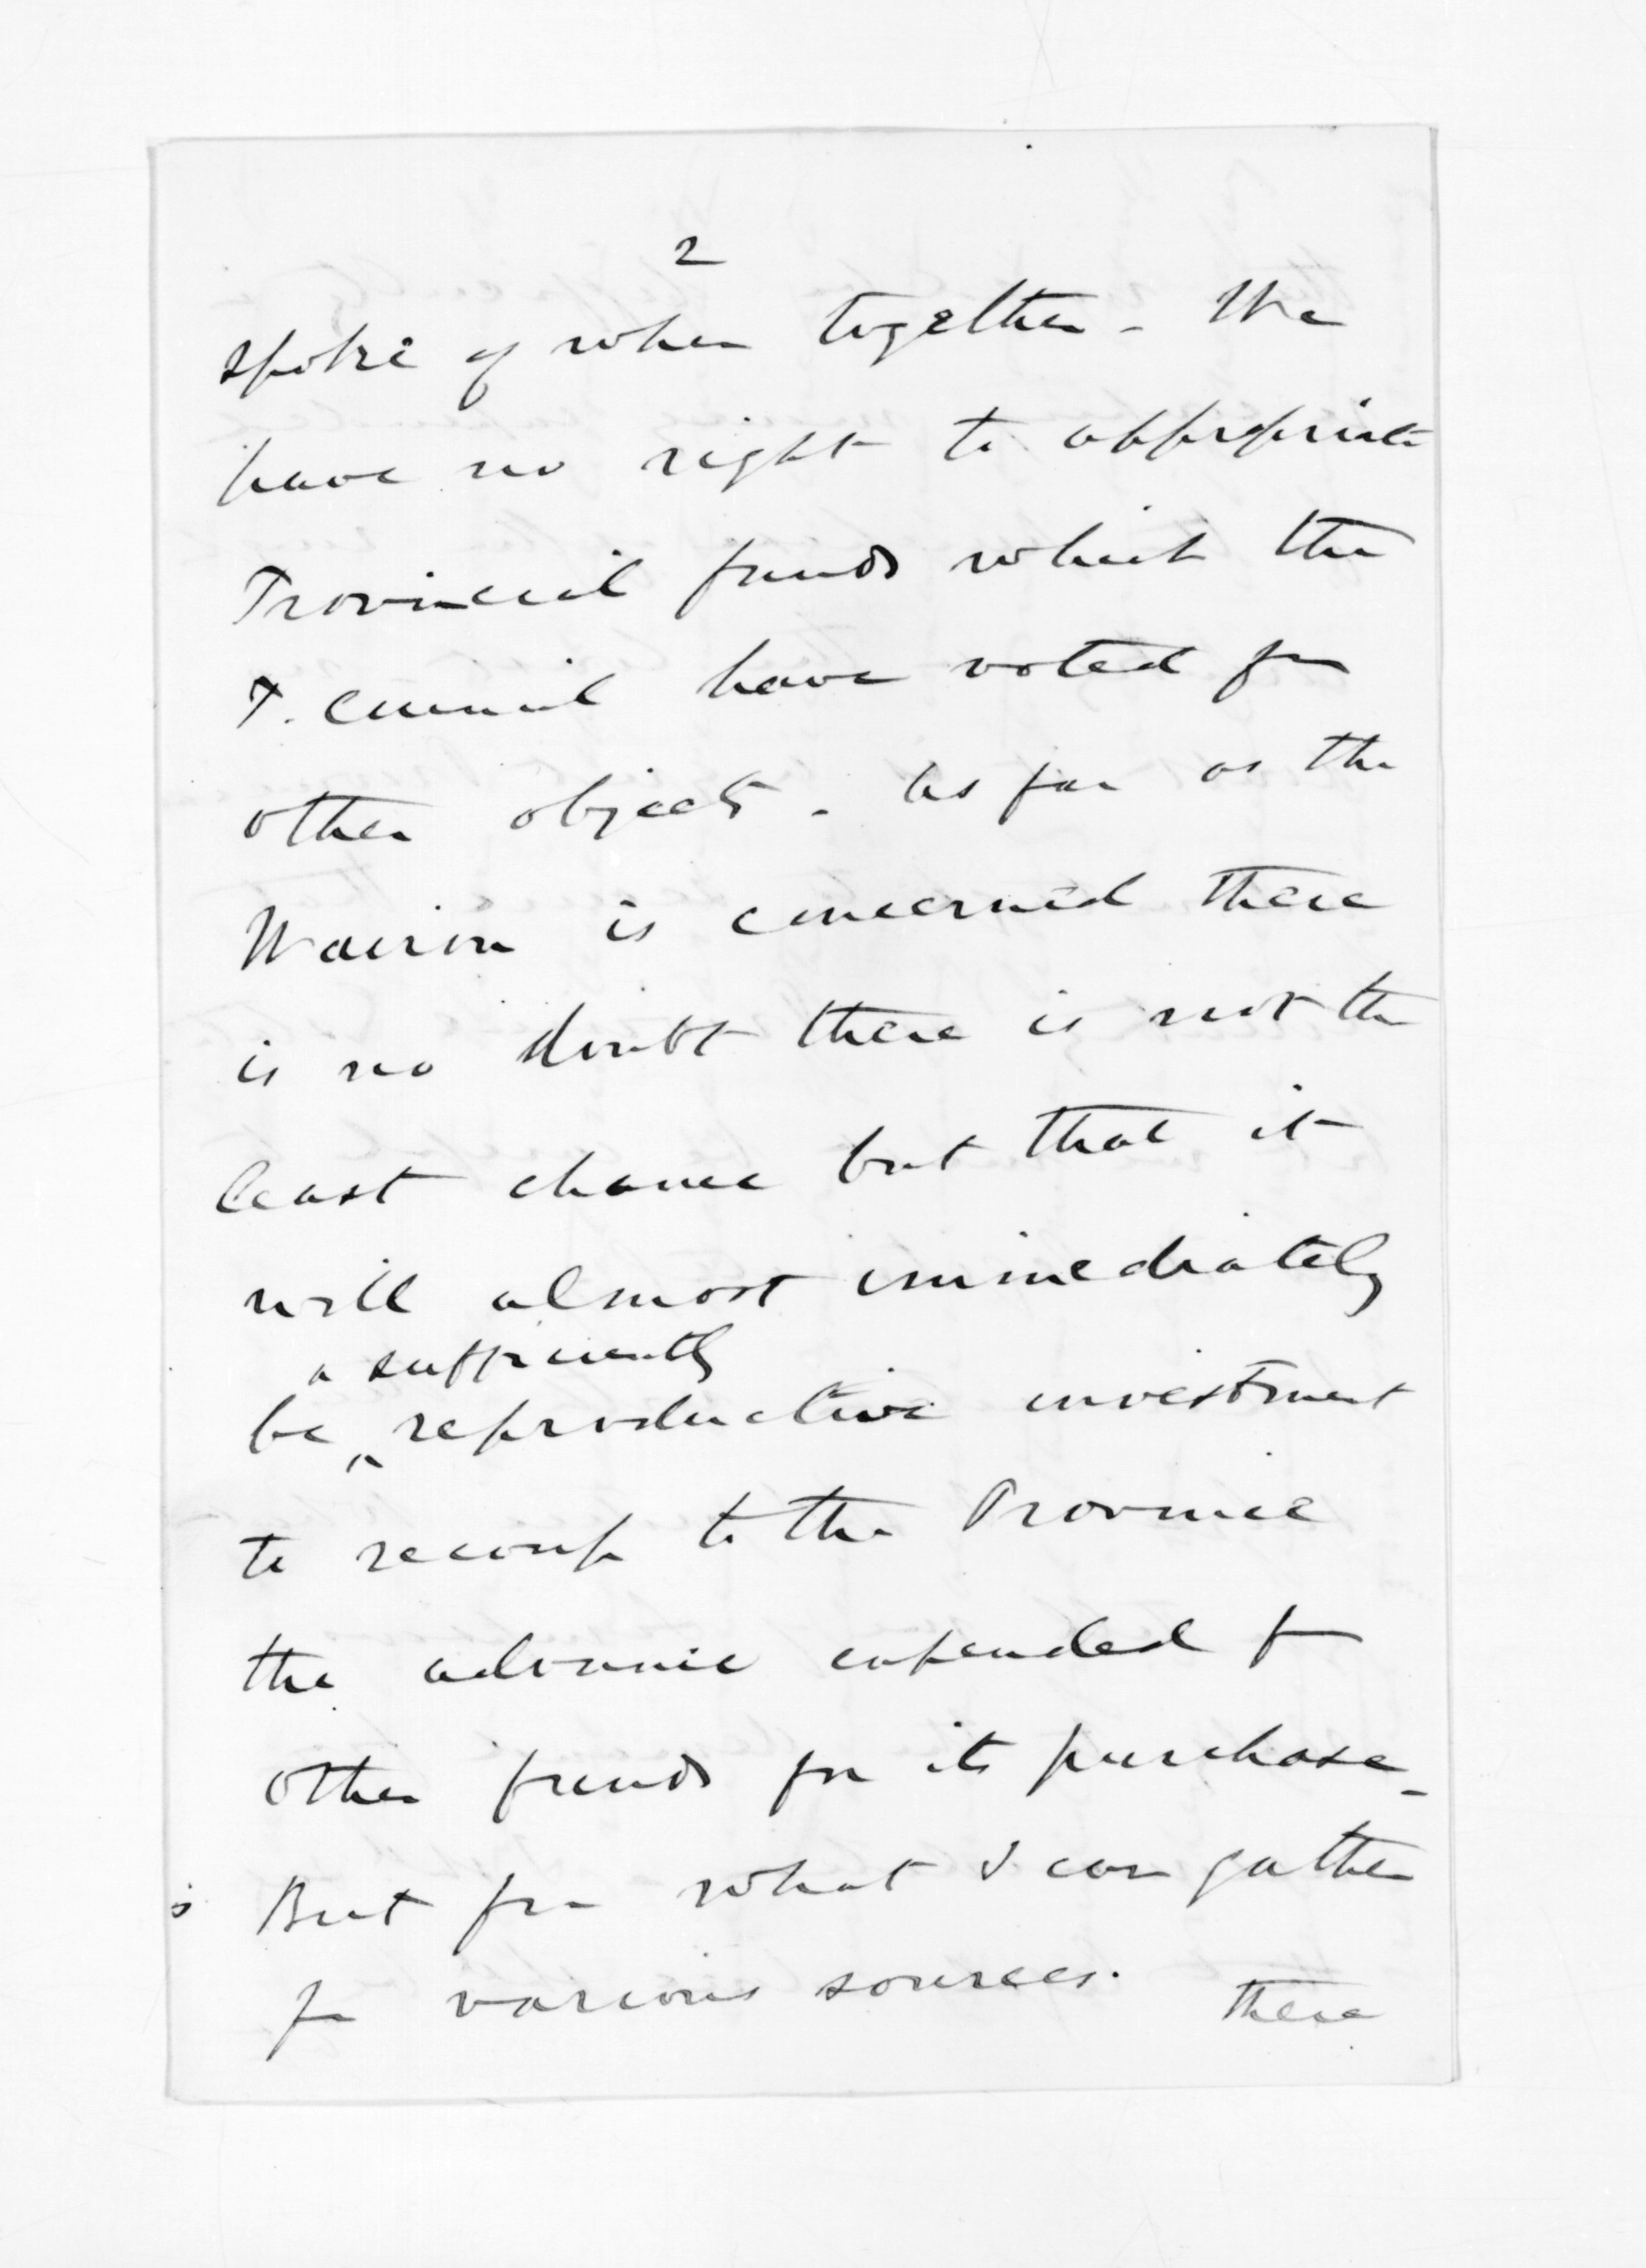 2
spoke of when together - We
have no right to appropriate
Provincial funds which the
P. Council have voted for
other objects - As far as the
Wairoa is concerned there
is no doubt there is not the
least chance but that it
will almost immediately
a sufficiently
be ^ reproductive investment
to recoup to the Province
the advance expended fm
other funds for its purchase -
But fm what I can gather
fm various sources. there